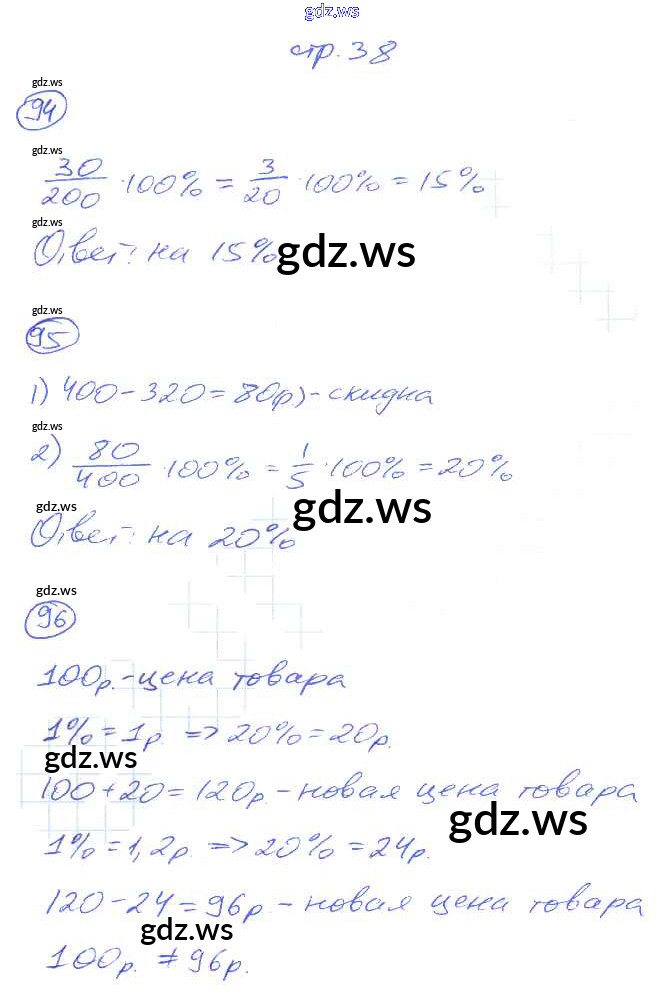 gdz.ws
стр. 38
gdz.ws
94
gdz.ws
30/200 · 100% = 3/20 · 100% = 15%
gdz.ws
Ответ: на 15%
gdz.ws
gdz.ws
95
1) 400 - 320 = 80(р) - скидка
gdz.ws
2) 80/400 · 100% = 1/5 · 100% = 20%
gdz.ws
gdz.ws
Ответ: на 20%
gdz.ws
96
100р. - цена товара
1% = 1р. => 20% = 20р.
gdz.ws
100 + 20 = 120р. - новая цена товара
gdz.ws
1% = 1,2р. => 20% = 24р.
120 - 24 = 96р. - новая цена товара
gdz.ws
100р. ≠ 96р.